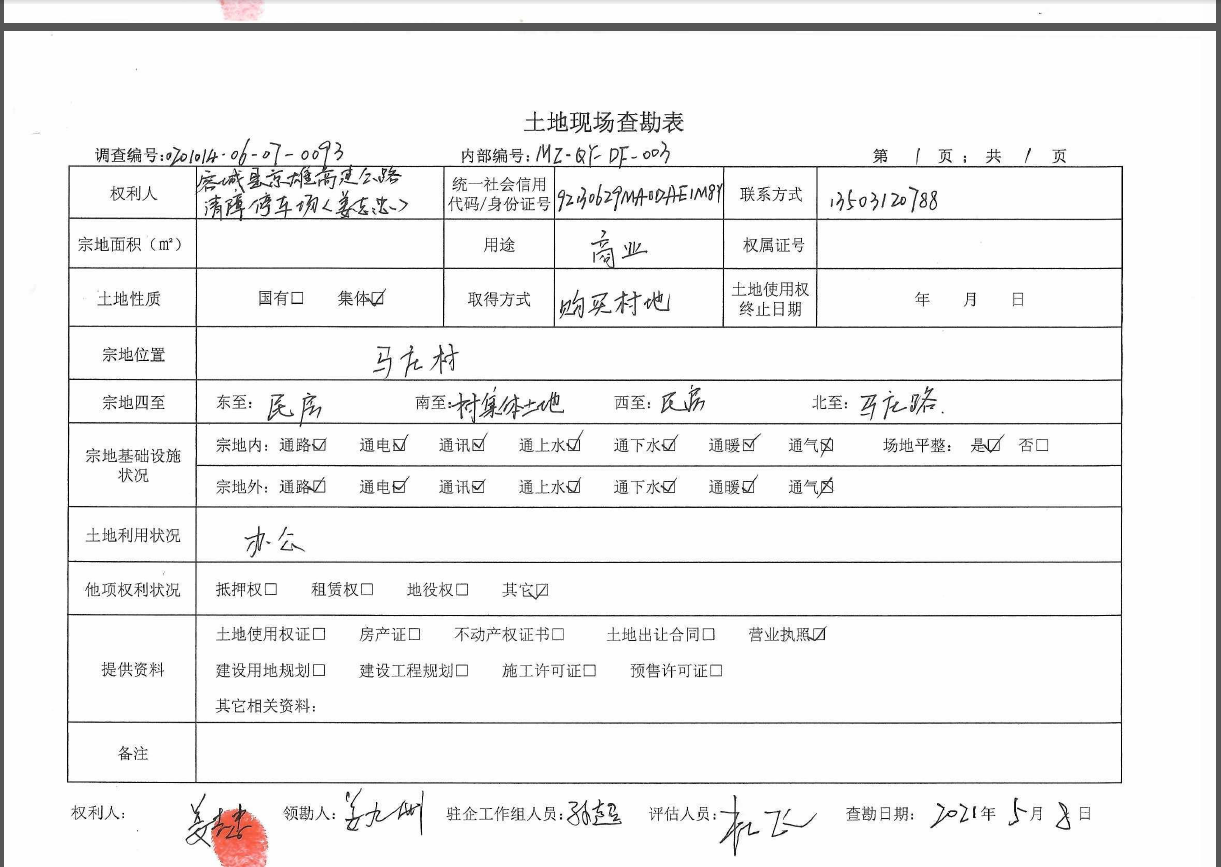 土地现场查勘表
调查编号:0201014-06-07-0093 内部编号:MZ-QY-DF-003 第 1 页；共 1 页
权利人 容城县京雄高速公路清障停车场(姜志忠) 统一社会信用代码/身份证号 92130629MA0DAE1M8Y 联系方式 13503120788
宗地面积（㎡） 用途 商业 权属证号
土地性质 国有□ 集体☑ 取得方式 购买村地 土地使用权终止日期 年 月 日
宗地位置 马庄村
宗地四至 东至：民房 南至：村集体土地 西至：民房 北至：马庄路.
宗地基础设施状况
宗地内：通路☑ 通电☑ 通讯☑ 通上水☑ 通下水☑ 通暖☑ 通气☒ 场地平整：是☑ 否□
宗地外：通路☑ 通电☑ 通讯☑ 通上水☑ 通下水☑ 通暖☑ 通气☒
土地利用状况 办公
他项权利状况 抵押权□ 租赁权□ 地役权□ 其它☑
提供资料
土地使用权证□ 房产证□ 不动产权证书□ 土地出让合同□ 营业执照☑
建设用地规划□ 建设工程规划□ 施工许可证□ 预售许可证□
其它相关资料：
备注
权利人： 姜志忠 领勘人：姜九州 驻企工作组人员： 评估人员： 查勘日期： 2021年 5月 8日